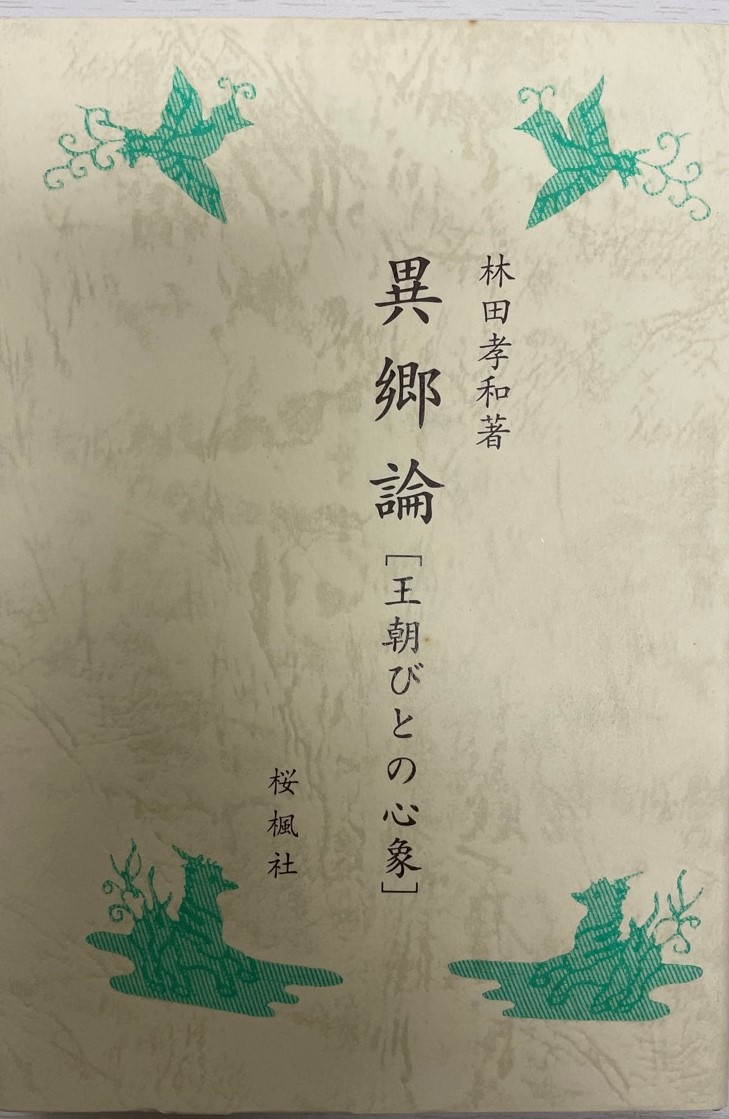 林田孝和著
異郷論［王朝びとの心象］
桜楓社